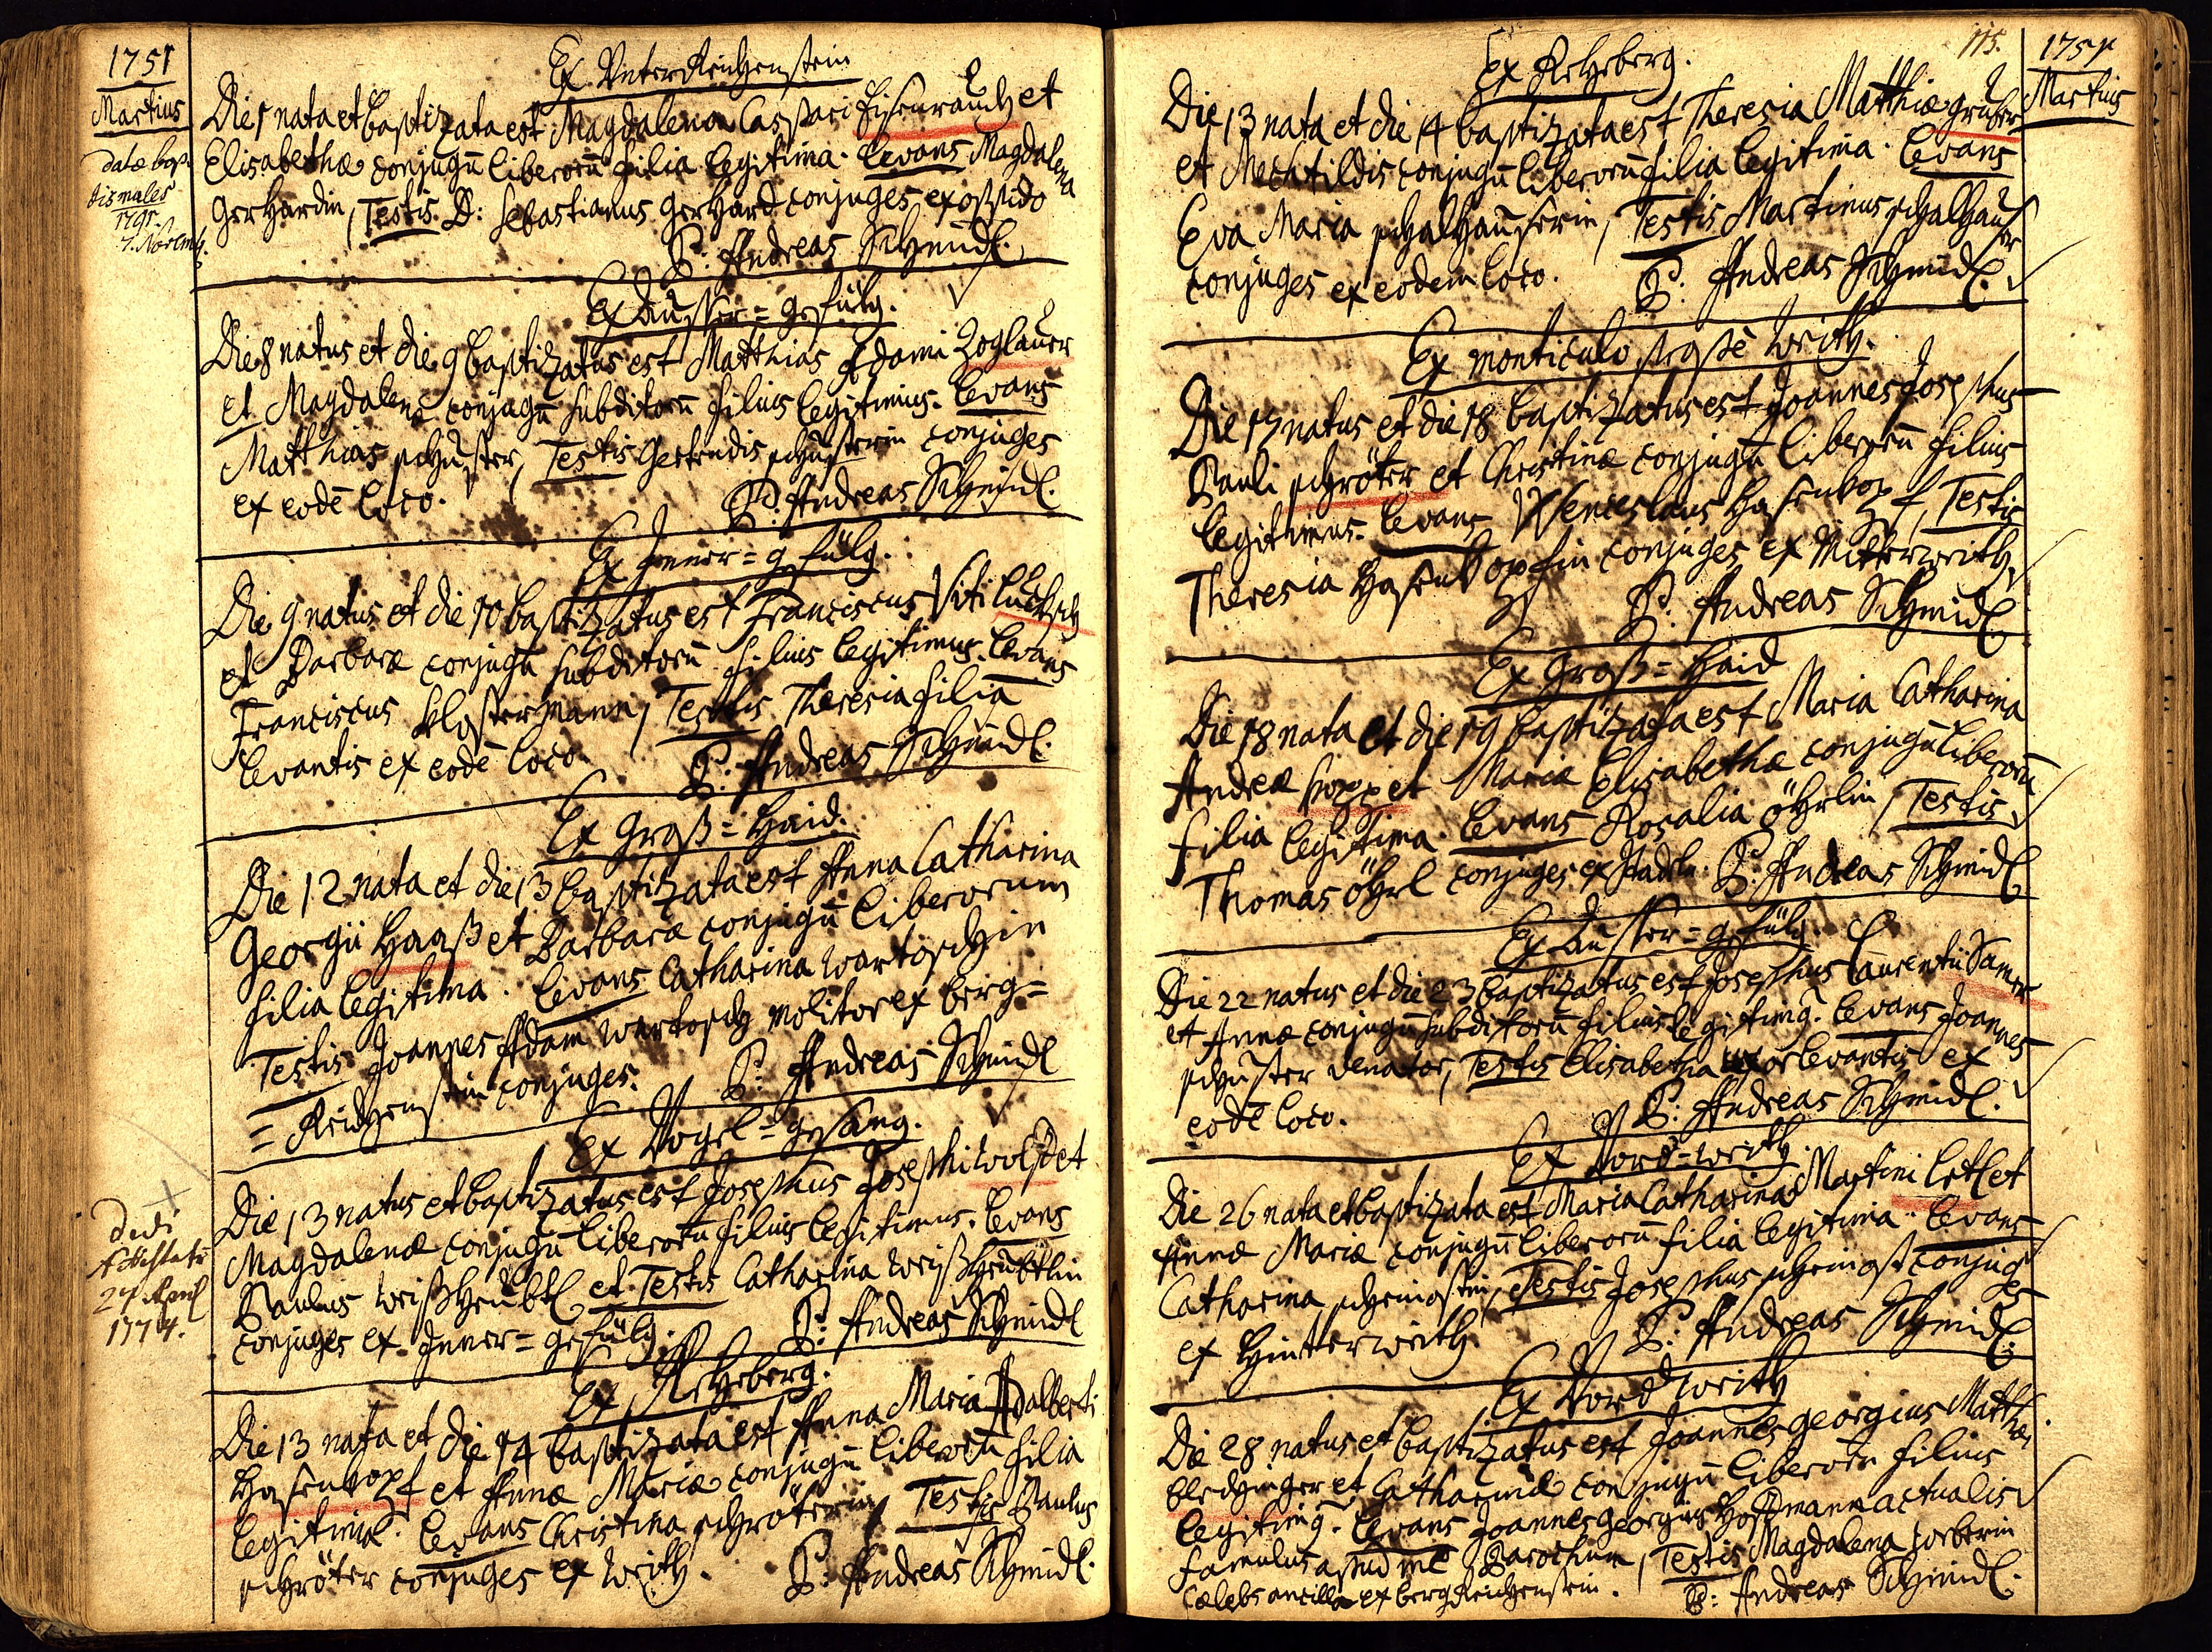 1751
Martius
datæ bap-
tismales
1791.
7. Novemb.
Ex Unter Reichenstein
Die 1 nata et baptizata est Magdalena Casspari Eisenrauch et
Elisabethæ conjugū liberorū filia legitima. Levans Magdalena
Gerhardin, Testis D: Sebastianus Gerhard conjuges ex oppido
P: Andreas Schmidl.
Ex Ausser=gefülg.
Die 8 natus et die 9 baptizatus est Matthias Adami Zoglauer
et Magdalenæ conjugū subditorū filius legitimus. Levans
Matthias schuster, Testis Gertrudis schusterin conjuges
ex eodē loco.
P: Andreas Schmidl.
Ex Inner=gefülg.
Die 9 natus et die 10 baptizatus est Franciscus Viti Luksch
et Barbaræ conjugū subditorū filius legitimus. Levans
Franciscus Klostermann, Testis Theresia filia
levantis ex eodē loco.
P: Andreas Schmidl.
Ex Groß=Haid.
Die 12 nata et die 13 baptizata est Anna Catharina
Georgii Haaß et Barbaræ conjugū liberorum
filia legitima. Levans Catharina Wartoschin
Testis Joannes Adam Wartosch molitor ex Berg=
=Reichenstein conjuges.
P: Andreas Schmidl
Ex Vogel=gesang.
Die 13 natus et baptizatus est Josephus Josephi Wolf et
Magdalenæ conjugū liberorū filius legitimus. Levans
Paulus Weißheubtl et Testis Catharina Weißheubtlin
conjuges ex Inner=gefülg.
P: Andreas Schmidl
dedi
Attestatū
27 April
1774.
Ex Rehberg.
Die 13 nata et die 14 baptizata est Anna Maria Adalberti
Hasenkopf et Annæ Mariæ conjugū liberorū filia
legitima. Levans Christina schröterin, Testis Paulus
schröter conjuges ex Weith.
P: Andreas Schmidl.
115.
1751
Martius
Ex Rehberg.
Die 13 nata et die 14 baptizata est Theresia Matthiæ gruber
et Mechtildis conjugū liberorū filia legitima. Levans
Eva Maria schalhauserin, Testis Martinus schalhauser
conjuges ex eodem loco.
P: Andreas Schmidl.
Ex monticulo Weith.
Die 17 natus et die 18 baptizatus est Joannes Josephus
Pauli schröter et Christinæ conjugū liberorū filius
legitimus. Levans Wenceslaus Hasenkopf, Testis
Theresia Hasenkopfin conjuges ex Mitterweith.
P: Andreas Schmidl.
Ex Groß=Haid
Die 18 nata et die 19 baptizata est Maria Catharina
Andreæ et Mariæ Elisabethæ conjugū liberorū
filia legitima. Levans Rosalia öhrlin, Testis
Thomas öhrl conjuges ex Stadln. P: Andreas Schmidl.
Ex Ausser=gefülg.
Die 22 natus et die 23 baptizatus est Josephus Laurentii Samer
et Annæ conjugū subditorū filius legitimg. Levans Joannes
schuster venator, Testis Elisabetha uxor levantis ex
eodē loco.
P: Andreas Schmidl.
Ex Vord=weith.
Die 26 nata et baptizata est Maria Catharina Martini Letl et
Annæ Mariæ conjugū liberorū filia legitima. Levans
Catharina, Testis Josephus conjuges
ex Hinterweith.
P: Andreas Schmidl.
Ex Vord weith
Die 28 natus et baptizatus est Joannes Georgius Matthæi
et Catharinæ conjugū liberorū filius
legitimg. Levans Joannes Georgius Hoffmann actualis
famulus apud me Parochum, Testis Magdalena Weberin
cælebs ancilla ex Bergreichenstein. P: Andreas Schmidl.